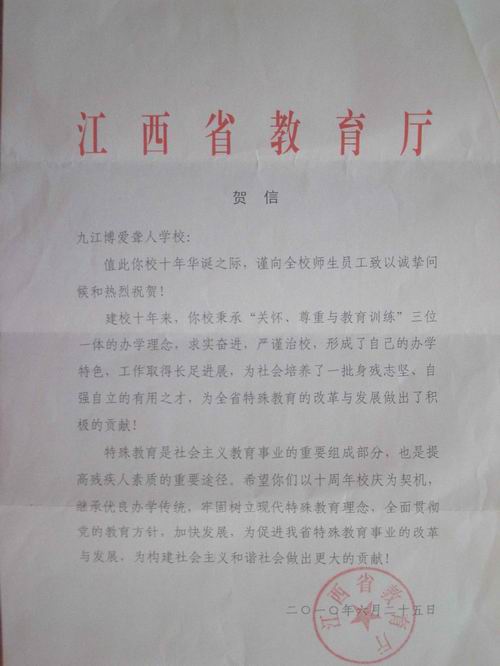 江西省教育厅
贺信
九江博爱聋人学校：
值此你校十年华诞之际，谨向全校师生员工致以诚挚问
候和热烈祝贺！
建校十年来，你校秉承“关怀、尊重与教育训练”三位
一体的办学理念，求实奋进，严谨治校，形成了自己的办学
特色，工作取得长足进展，为社会培养了一批身残志坚、自
强自立的有用之才，为全省特殊教育的改革与发展做出了积
极的贡献！
特殊教育是社会主义教育事业的重要组成部分，也是提
高残疾人素质的重要途径。希望你们以十周年校庆为契机，
继承优良办学传统，牢固树立现代特殊教育理念，全面贯彻
党的教育方针，加快发展，为促进我省特殊教育事业的改革
与发展，为构建社会主义和谐社会做出更大的贡献！
二〇一〇年六月二十五日
江西省教育厅